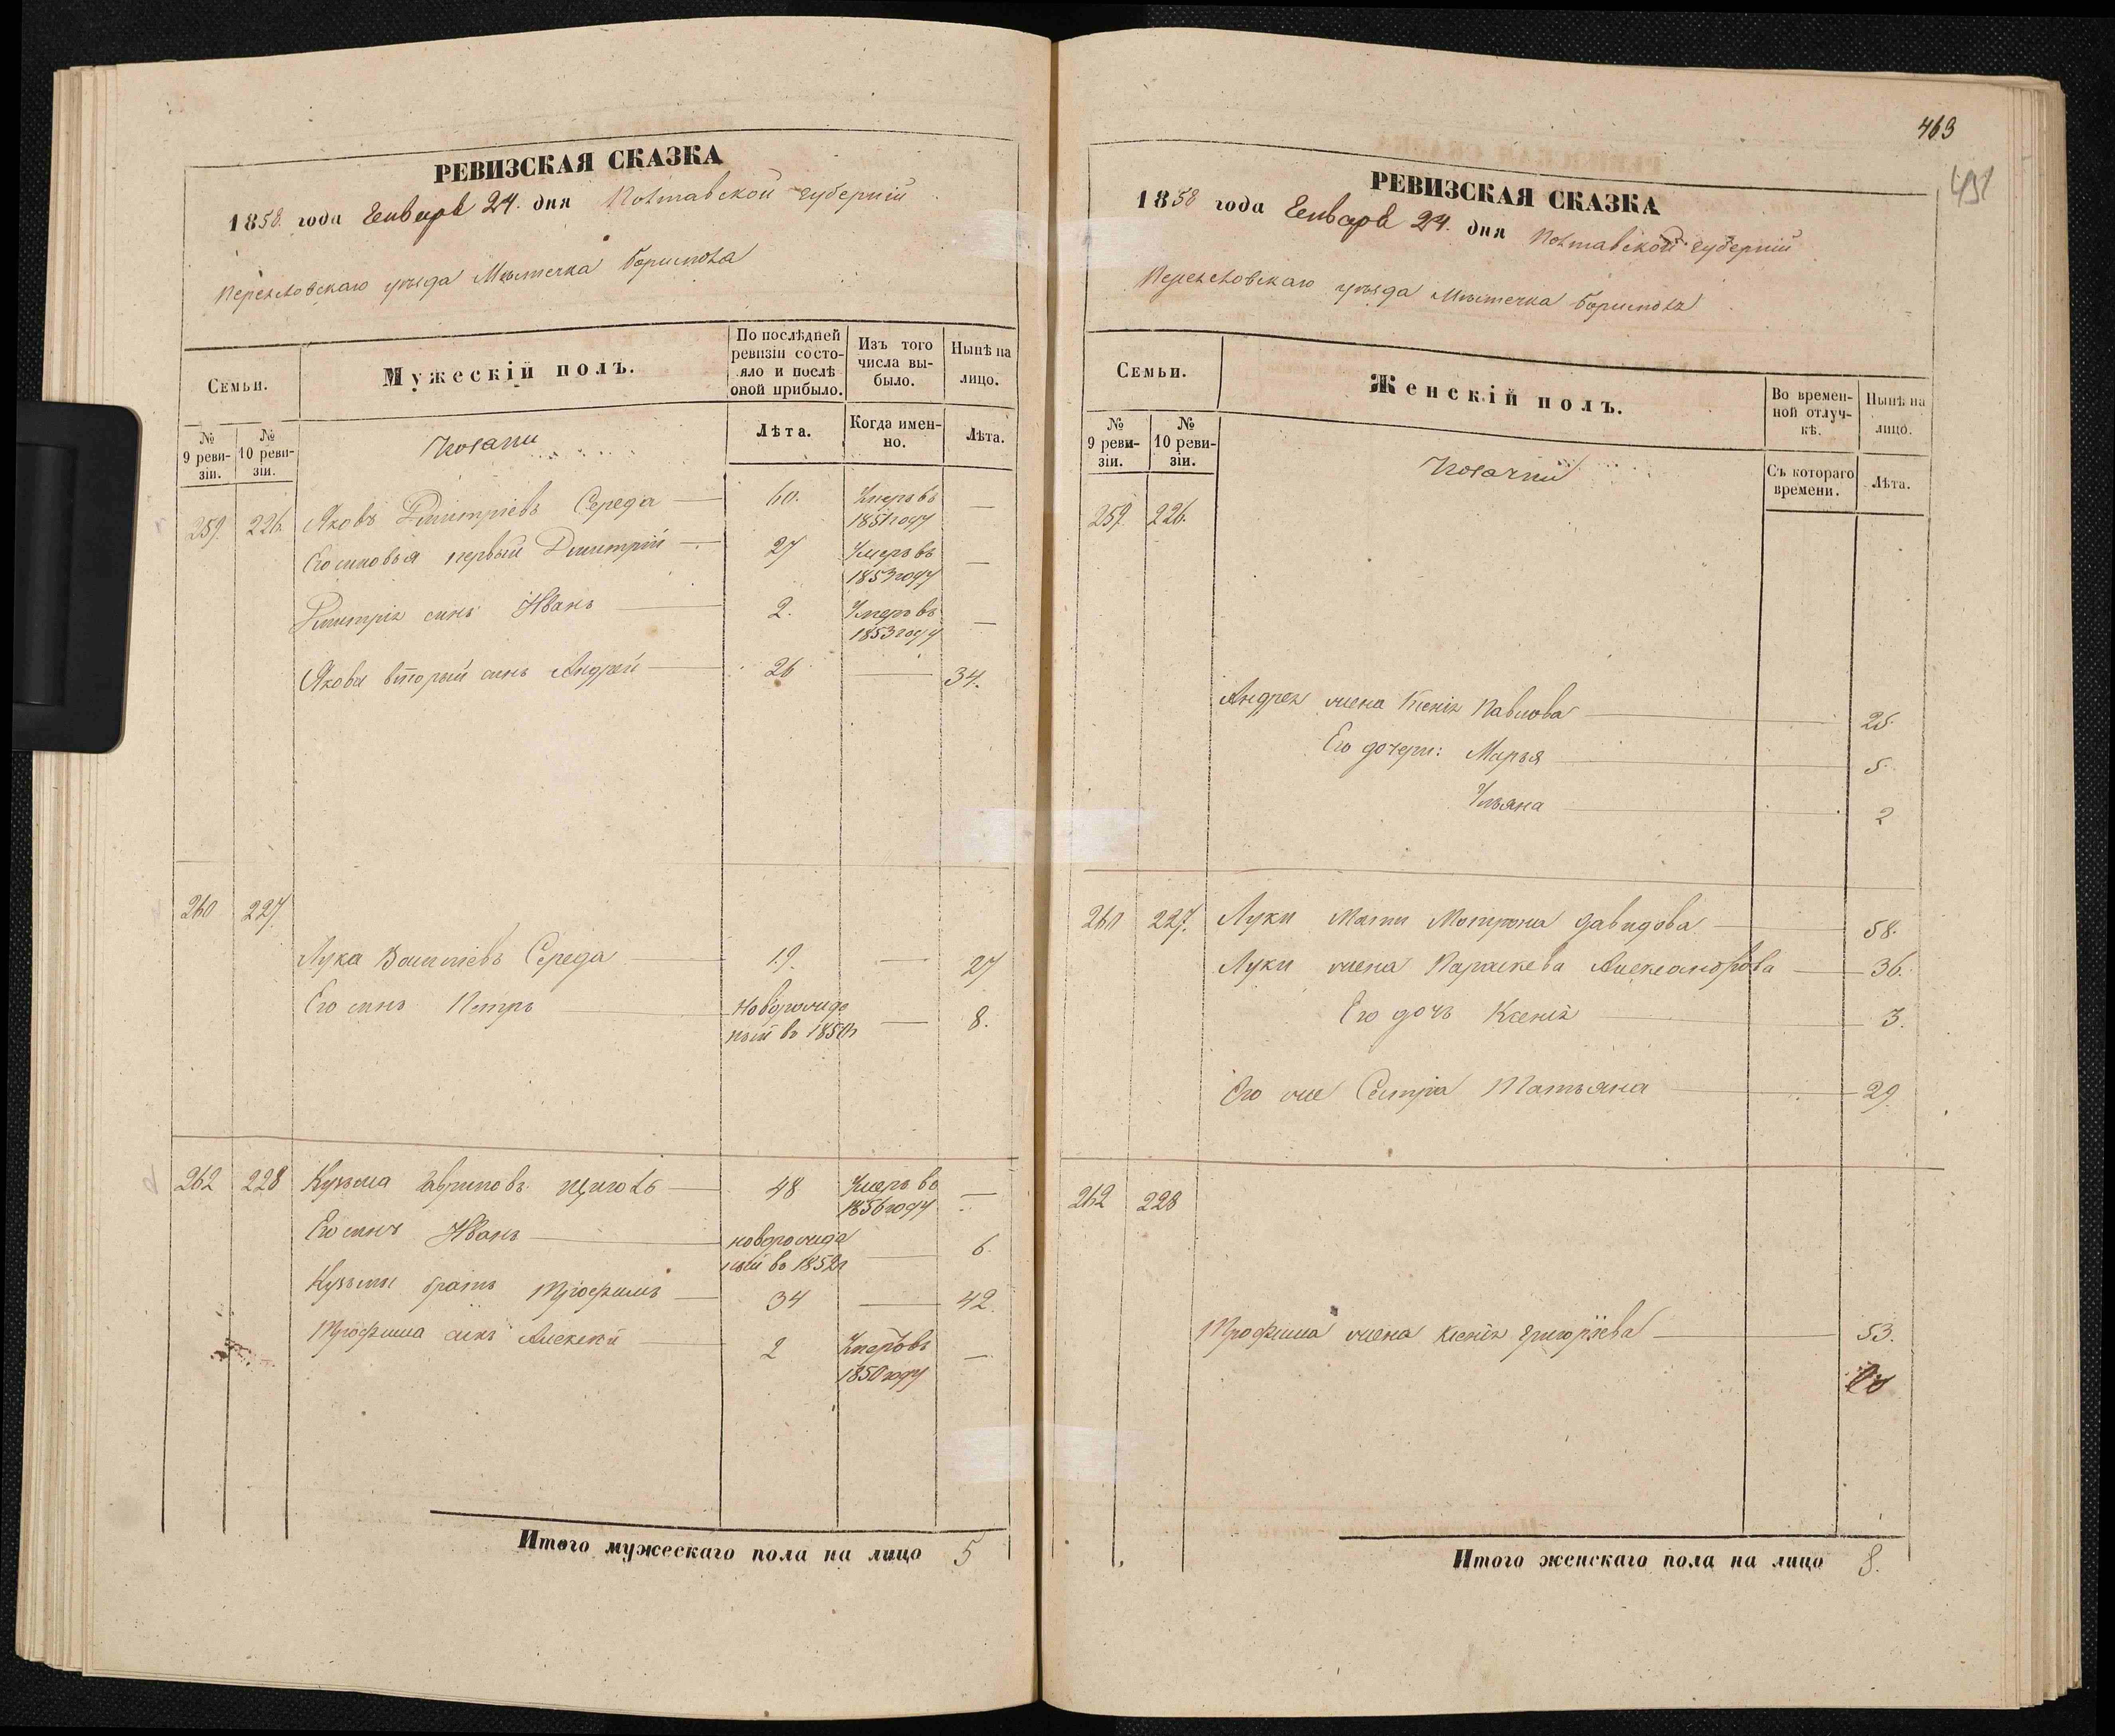 РЕВИЗСКАЯ СКАЗКА
1858 года Генваря 24 дня Полтавской губерніи
Переяловскаго уезда Местечка Борисполя
Семьи.
Мужескій полъ.
По послѣдней ревизіи состояло и послѣ оной прибыло.
Изъ того числа выбыло.
Нынѣ на лицо.
№ 9 ревизіи.
№ 10 ревизіи.
Козаки
Лѣта.
Когда именно.
Лѣта.
259. 226. Яковъ Дмитріевъ Середа — 60. Умеръ въ 1851 году —
Его сыновья первый Дмитрій — 27 Умеръ въ 1853 году —
Дмитрія сынъ Иванъ — 2. Умеръ въ 1853 году —
Якова вторый сынъ Андрей — 26 — 34.
260 227.
Лука Середа — 19. — 27
Его сынъ Петръ — Новорожденый въ — 8.
262 228 Кузьма — 48 Умеръ въ 1856 году —
Его сынъ Иванъ — новорожденый въ 1852 г — 6.
Кузьмы братъ Трофимъ — 34 — 42.
Трофима сынъ Алексей — 2 Умеръ въ 1850 году —
Итого мужескаго пола на лицо 5
463
РЕВИЗСКАЯ СКАЗКА
1858 года Генваря 24. дня Полтавской губерніи
Переяловскаго уезда Местечка Борисполя
Семьи.
Женскій полъ.
Во временной отлучкѣ.
Нынѣ на лицо.
№ 9 ревизіи.
№ 10 ревизіи.
Козачки
Съ котораго времени.
Лѣта.
259. 226.
Андрея жена Ксенія Павлова — 25.
Его дочери: Марья — 5
Ульяна — 2
260 227. Луки Мати Мотрона Давидова — 58.
Луки жена Параскева Александрова — 36.
Его дочь Ксенія — 3.
Его же Сестра Татьяна — 29
262 228
Трофима жена Ксенія Григоріева — 53.
Итого женскаго пола на лицо 8.